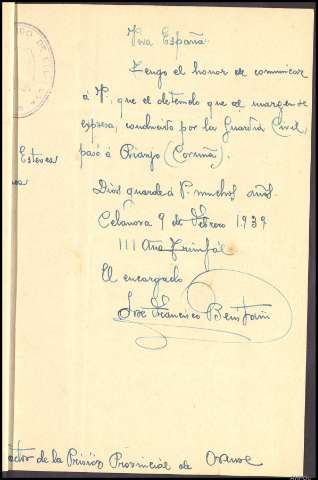 Viva España
Tengo el honor de comunicar
á V. que el detenido que al margen se
expresa, conducido por la Guardia Civil
pasó á Rianjo (Coruña).
Esteves
Dios guarde á V. muchos años.
Celanova 9 de Febrero 1939
III Año Triunfal
El encargado
José Francisco
de la Prisión Provincial de Orense